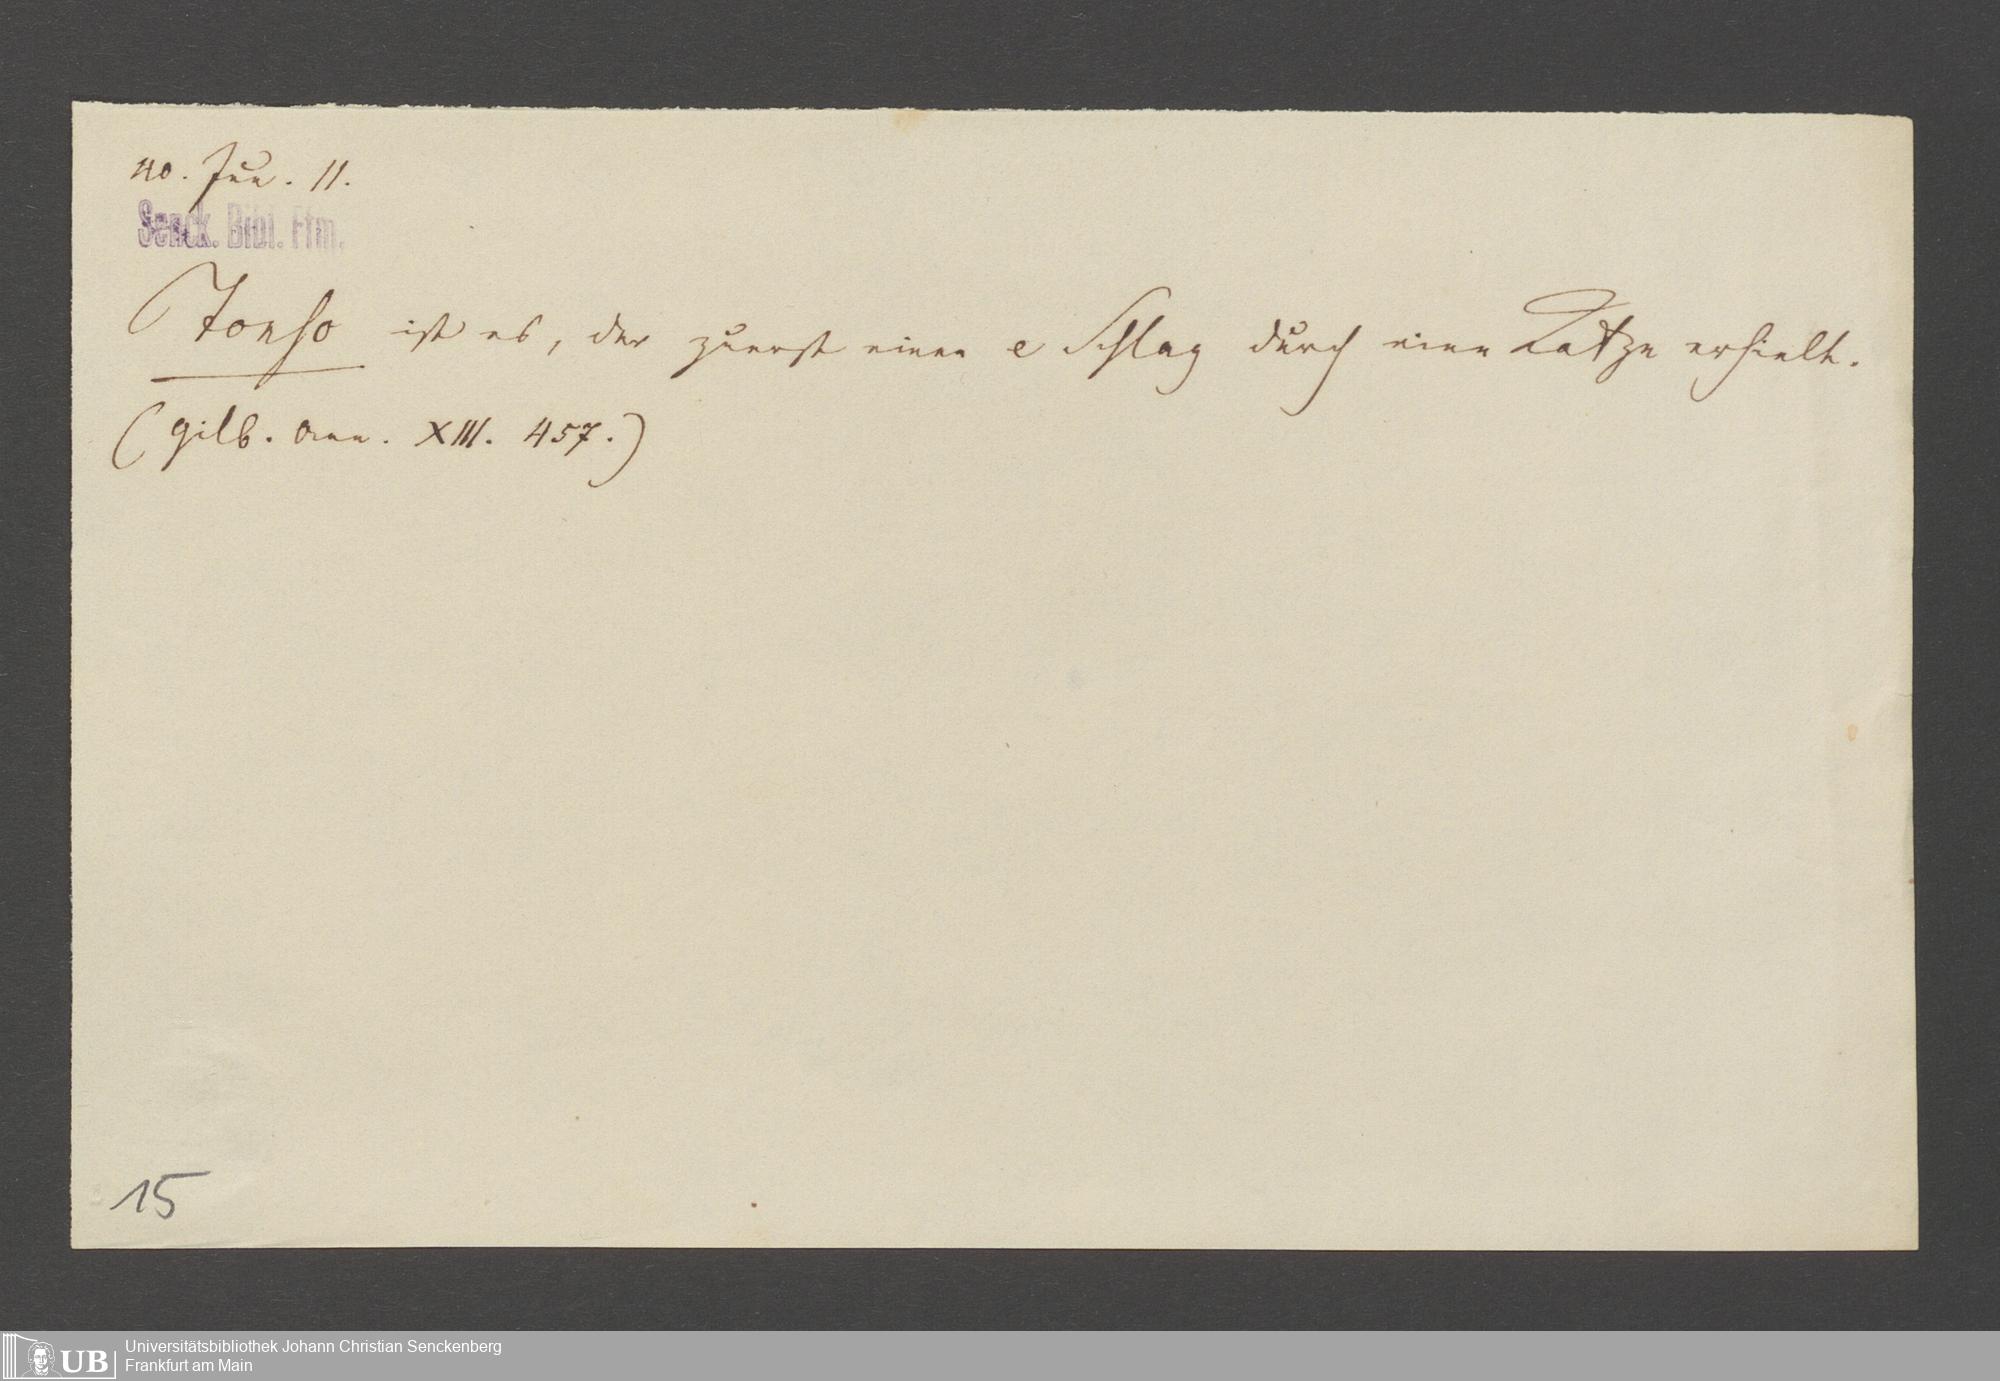 40. Jun. 11.
Senck. Bibl. Ffm.
Tonso ist es, der zuerst einen e Schlag durch eine Katze erhielt.
(Gilb. Ann. XIII. 457.)
15
UB
Universitätsbibliothek Johann Christian Senckenberg
Frankfurt am Main